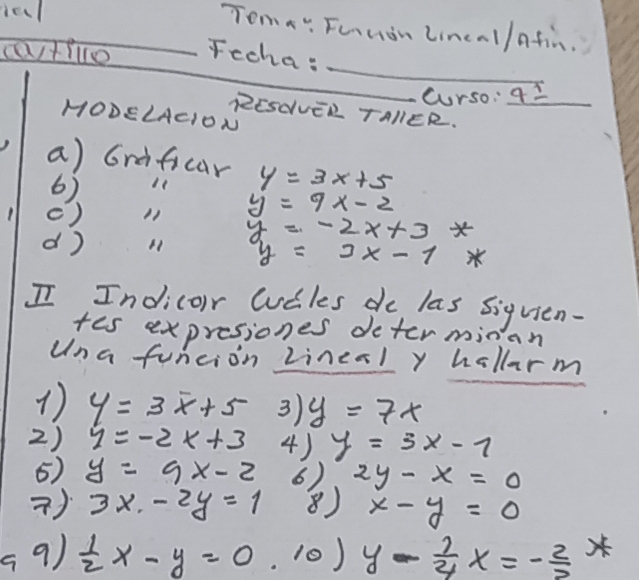 Tema: Función Lineal/Afin.
Fecha:
Curso: 9º
MODELACION RESOLVER TALLER.
a) Gráficar y = 3x+5
b) " y = 9x-2
c) " y = -2x+3 *
d) " y = 3x-1 *
II Indicar cuáles de las siguien-
tes expresiones determinan
una función lineal y hallar m
1) y = 3x+5 3) y = 7x
2) y = -2x+3 4) y = 3x-1
5) y = 9x-2 6) 2y-x = 0
7) 3x-2y=1 8) x-y = 0
9) 1/2 x-y=0. 10) y-